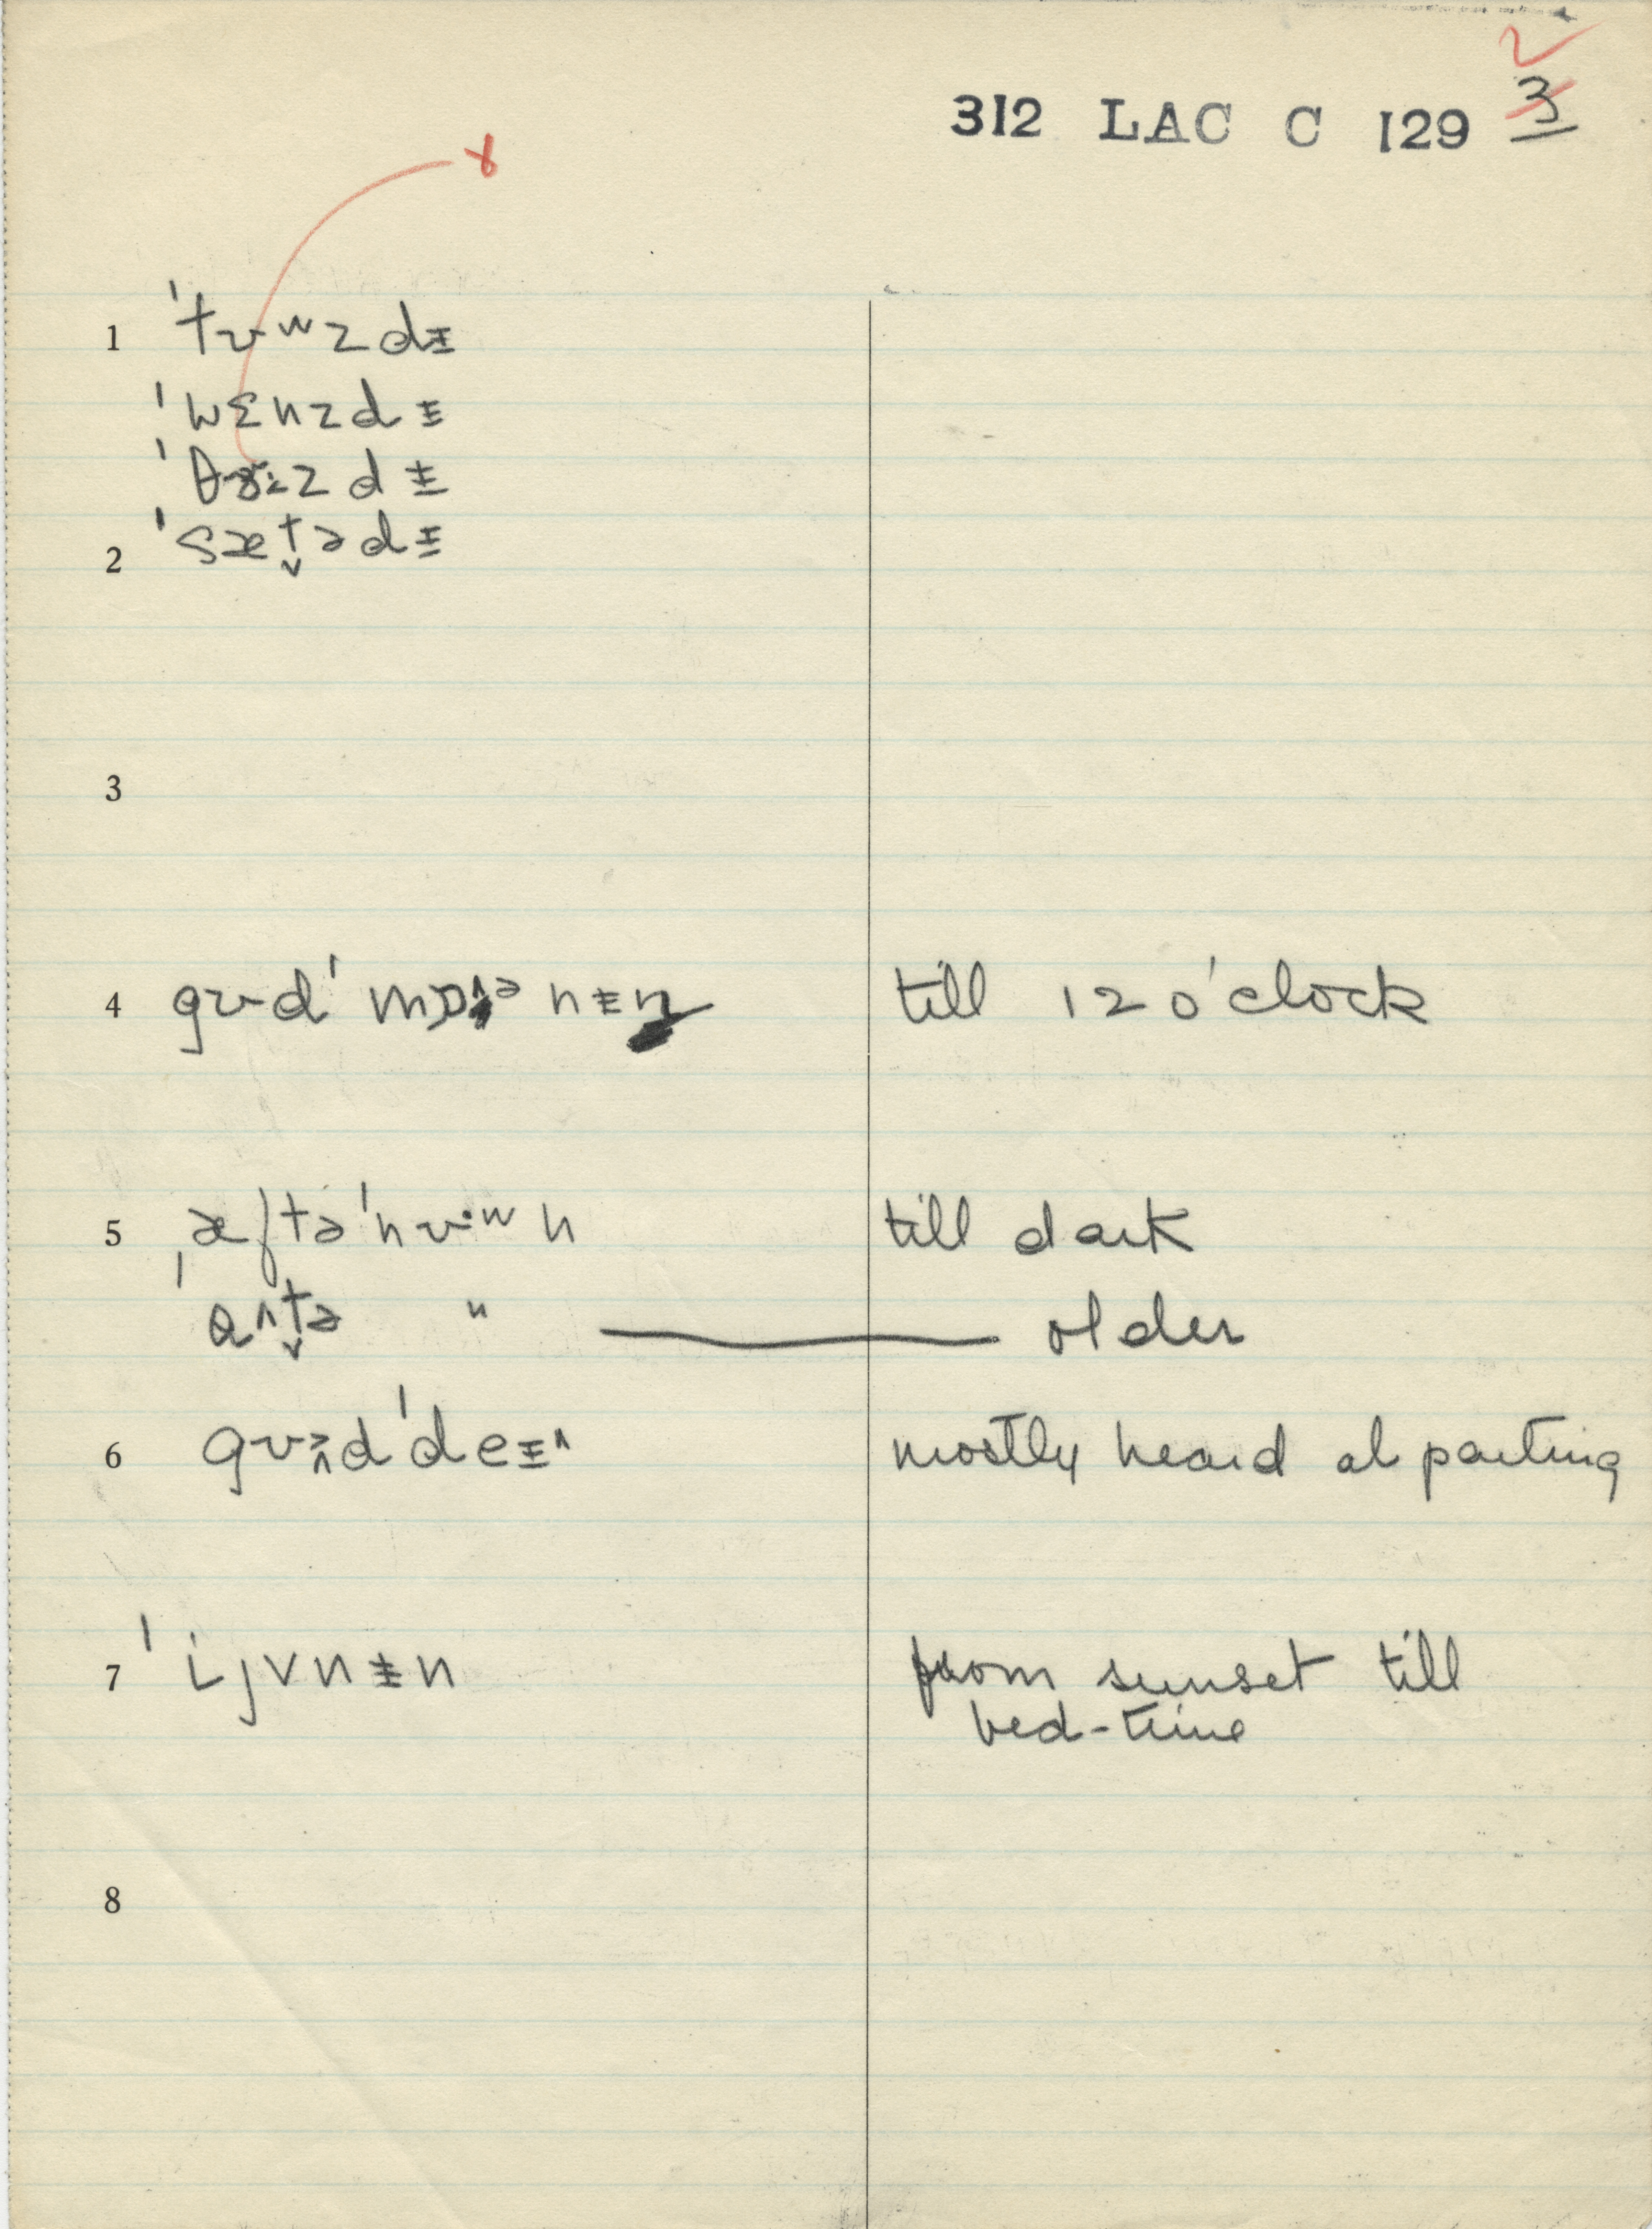 312 LAC C 129 3
ɤ
1 ˈtʊʷzdɪ
ˈwɛnzdɪ
ˈzdɪ
ˈsæt̬ədɪ
2
3
4 gʊdˈ till 12 o'clock
5 ˌæftəˈnʊ·ʷn till dark
" older
6 mostly heard at parting
7 ˈijvnɪn from sunset till
bed-time
8